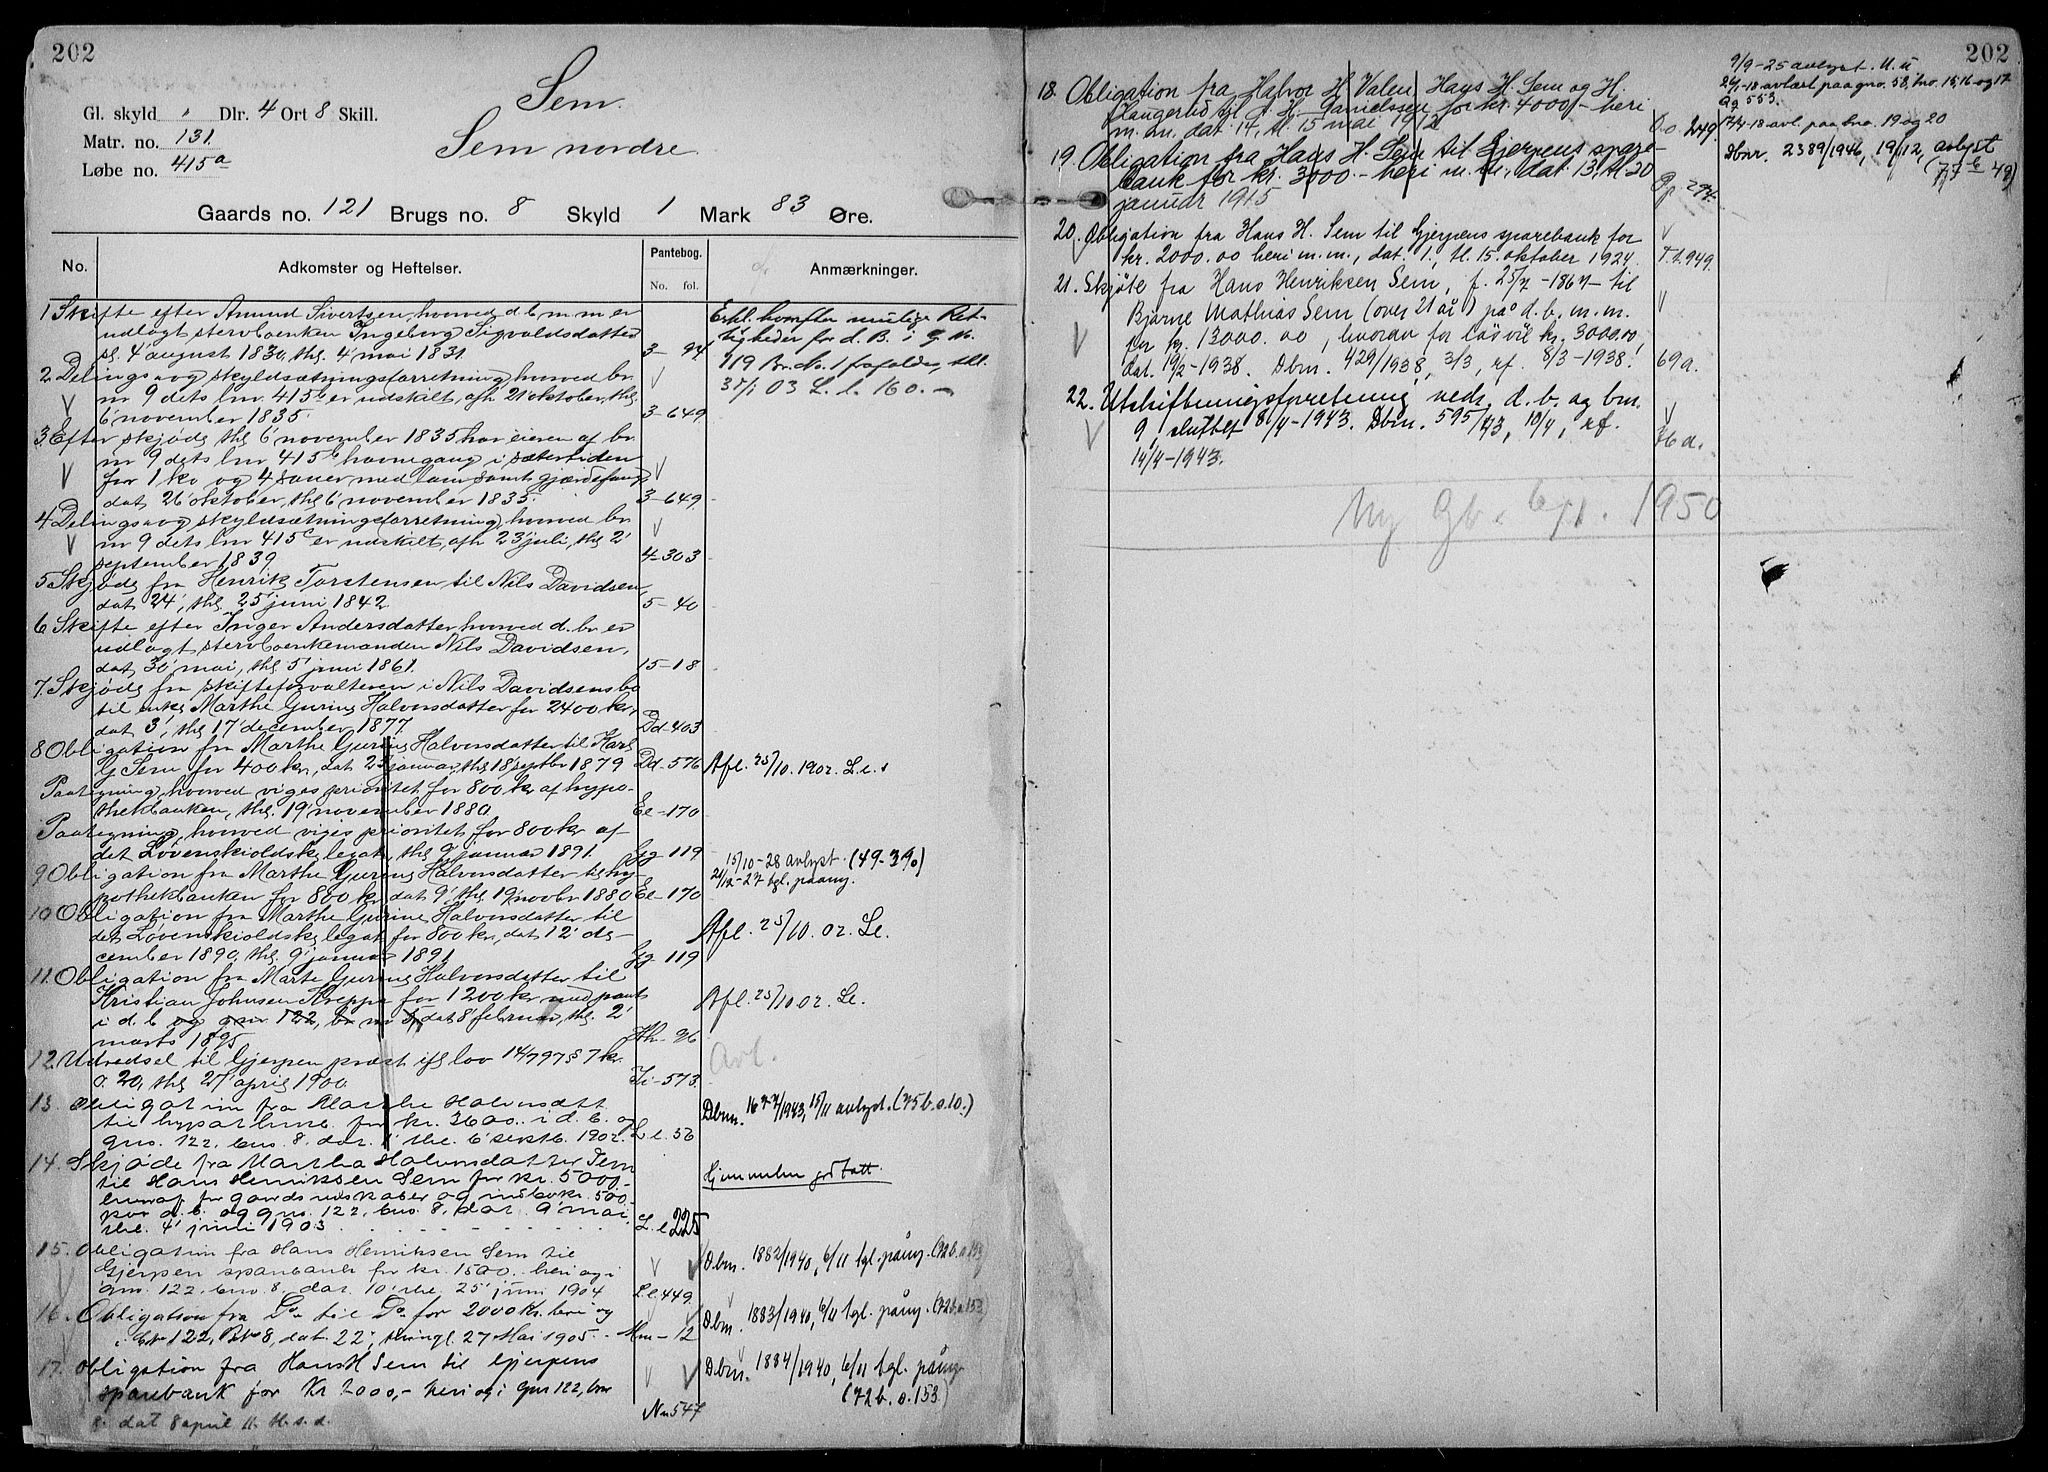 202
Sem.
Sem nordre.
Gl. skyld " Dlr. 4 Ort 8 Skill.
Matr. no. 131.
Løbe no. 415a
Gaards no. 121 Brugs no. 8 Skyld 1 Mark 83 Øre.
No. Adkomster og Heftelser. Pantebog. No. fol. Anmærkninger.
1 Skifte efter Amund Sivertsen, hvorved d. b. m. m er
udlagt stervboenken Ingeborg Sigvaldsdatter
4' august 1830, thl. 4' mai 1831. 3 - 94
Erkl. hvorefter mulige Ret-
tigheder for d. B. i g. No.
119 Br. No. 1 frafaldes, thl.
03 L. l. 160.
2 Delings- og skyldsætningsforretning, hvorved br.
nr 9 dets lnr. 415b er udskilt, afh. 21' oktober, thl.
6' november 1835. 3 - 649
3 Efter skjøde thl. 6' november 1835 har eieren af br.
nr 9 dets lnr 415b havnegang i sætertiden
for 1 ko og 4 sauer med lam samt gjærdefang
dat. 26' oktober, thl. 6' november 1835. 3 - 649
4 Delings- og skyldsætningsforretning, hvorved br
nr 9 dets lnr 415c er udskilt, afh. 23' juli, thl. 2'
september 1839. 4 - 303
5 Skjøde fra Henrik Torstensen til Nils Davidsen,
dat 24', thl. 25' juni 1842. 5 - 40
6 Skifte efter Inger Andersdatter hvorved d. br. er
udlagt stervboenkemanden Nils Davidsen,
dat 30' mai, thl. 5' juni 1861. 15 - 18
7. Skjøde fra skifteforvalteren i Nils Davidsens bo
til enke Marthe Gurine Halvorsdatter for 2400 kr.,
dat 3', thl. 17' december 1877. Dd - 403
8 Obligation fra Marthe Gurine Halvorsdatter til Karl
G Sem for 400 kr., dat 23' januar, thl. 18' septbr 1879 Dd - 576
Afl. 25/10. 1902. L. l.
Paategning, hvorved viges prioritet for 800 kr af hypo-
thekbanken, thl. 19' november 1880. Ee - 170
Paategning, hvorved viges prioritet for 800 kr af
det Løvenskioldske legat, thl. 9' januar 1891. Gg - 119
9 Obligation fra Marthe Gurine Halvorsdatter til hy-
pothekbanken for 800 kr, dat 9', thl. 19' novbr 1880 Ee - 170
15/10 - 28 avlyst. (49 - 390)
21/12 - 27 tgl. paateg.
10 Obligation fra Marthe Gurine Halvorsdatter til
det Løvenskioldske legat for 800 kr, dat 12' de-
cember 1890, thl. 9' januar 1891. Gg - 119
Afl. 25/10. 02. Ll.
11. Obligation fra Marte Gurine Halvorsdatter til
Kristian Johnsen Kreppa for 1200 kr med pant
i d. b. og gnr. 122, br. nr 8, dat 8' februar, thl. 2'
marts 1895 Hh - 96
Afl. 25/10 02. Ll.
12. Udredsel til Gjerpen præst ifl. lov 14/7 97 § 7 kr.
0. 20, thl. 27' april 1900. Ii - 573.
Avl.
13. Obligation fra Marthe Halvorsdatt
til hypotbank. for kr. 3600. i d. b. og
gno. 122, bno. 8. dat. 1' thl. 6' septb. 1902. L l. 56
Dbnr. 1677/1943, 15/11 avlyst. (75 b. s. 10.)
14. Skjøde fra Martha Halvorsdatter Sem
til Hans Henriksen Sem for kr. 5000,-
hvoraf for gaardsredskaber og indbo kr. 500,-
paa d. b. og gno. 122, bno. 8, dat. 9' mai,
thl. 4' juni 1903. L. l 225
Hjemmelen godtatt.
15. Obligation fra Hans Henriksen Sem til
Gjerpen sparebank for kr. 1500.- heri og i
gno. 122, bno. 8. dat. 10' thl. 25' juni 1904 L l. 449
Dbnr. 1882/1940, 6/11 tgl. påteg. (72 b. s. 153)
16. Obligation fra Do til Do for 2000 Kr. heri og
i Gno 122, Bno 8, dat. 22', thingl. 27 Mai 1905. - Mm - 12
Dbnr. 1883/1940, 6/11 tgl. påteg. (72 b. s. 153)
17. Obligation fra Hans H Sem til Gjerpens
sparebank for Kr 2000,- heri og i gnr 122, bnr
8. dat 8 april 11. th. s. d. Nn 547
Dbnr. 1884/1940, 6/11 tgl. påteg.
(72 b. s. 153.)
202
18. Obligation fra Halvor H Valen, Hans H. Sem og H.
til A. H. Danielssen for kr. 4000,- heri
m. m. dat. 14, tl. 15 mai 1912 Oo. 249
9/9 - 25 avlyst. U. u
24/1 - 18 avlæst paa gno. 58, bno. 15, 16 og 17
Qq 553.
12/4 - 18 avl. paa bno. 19 og 20
19. Obligation fra Hans H. Sem til Gjerpens spare-
bank for kr. 3000.- heri m. m., dat. 13, tl. 20
januar 1915 Pp 294
Dbnr. 2389/1946, 19/12, avlyst
(77b 49)
20. Obligation fra Hans H. Sem til Gjerpens sparebank for
kr. 2000.00 heri m. m., dat. 1., tl. 15. oktober 1924. T. t. 949.
21. Skjøte fra Hans Henriksen Sem, f. 25/7 - 1867 - til
Bjarne Mathias Sem (over 21 år) på d. b. m. m.
for kr. 13000.00, hvorav for løsøre kr. 3000.00,
dat. 19/2 - 1938. Dbnr. 429/1938, 3/3, rf. 8/3 - 1938. 69a.
22. Utskiftningsforretning vedr. d. b. og bnr.
9, sluttet 8/4 - 1943. Dbnr. 595/43, 10/4, rf.
14/4 - 1943. 76 a.
Ny Gb. 6/1. 1950